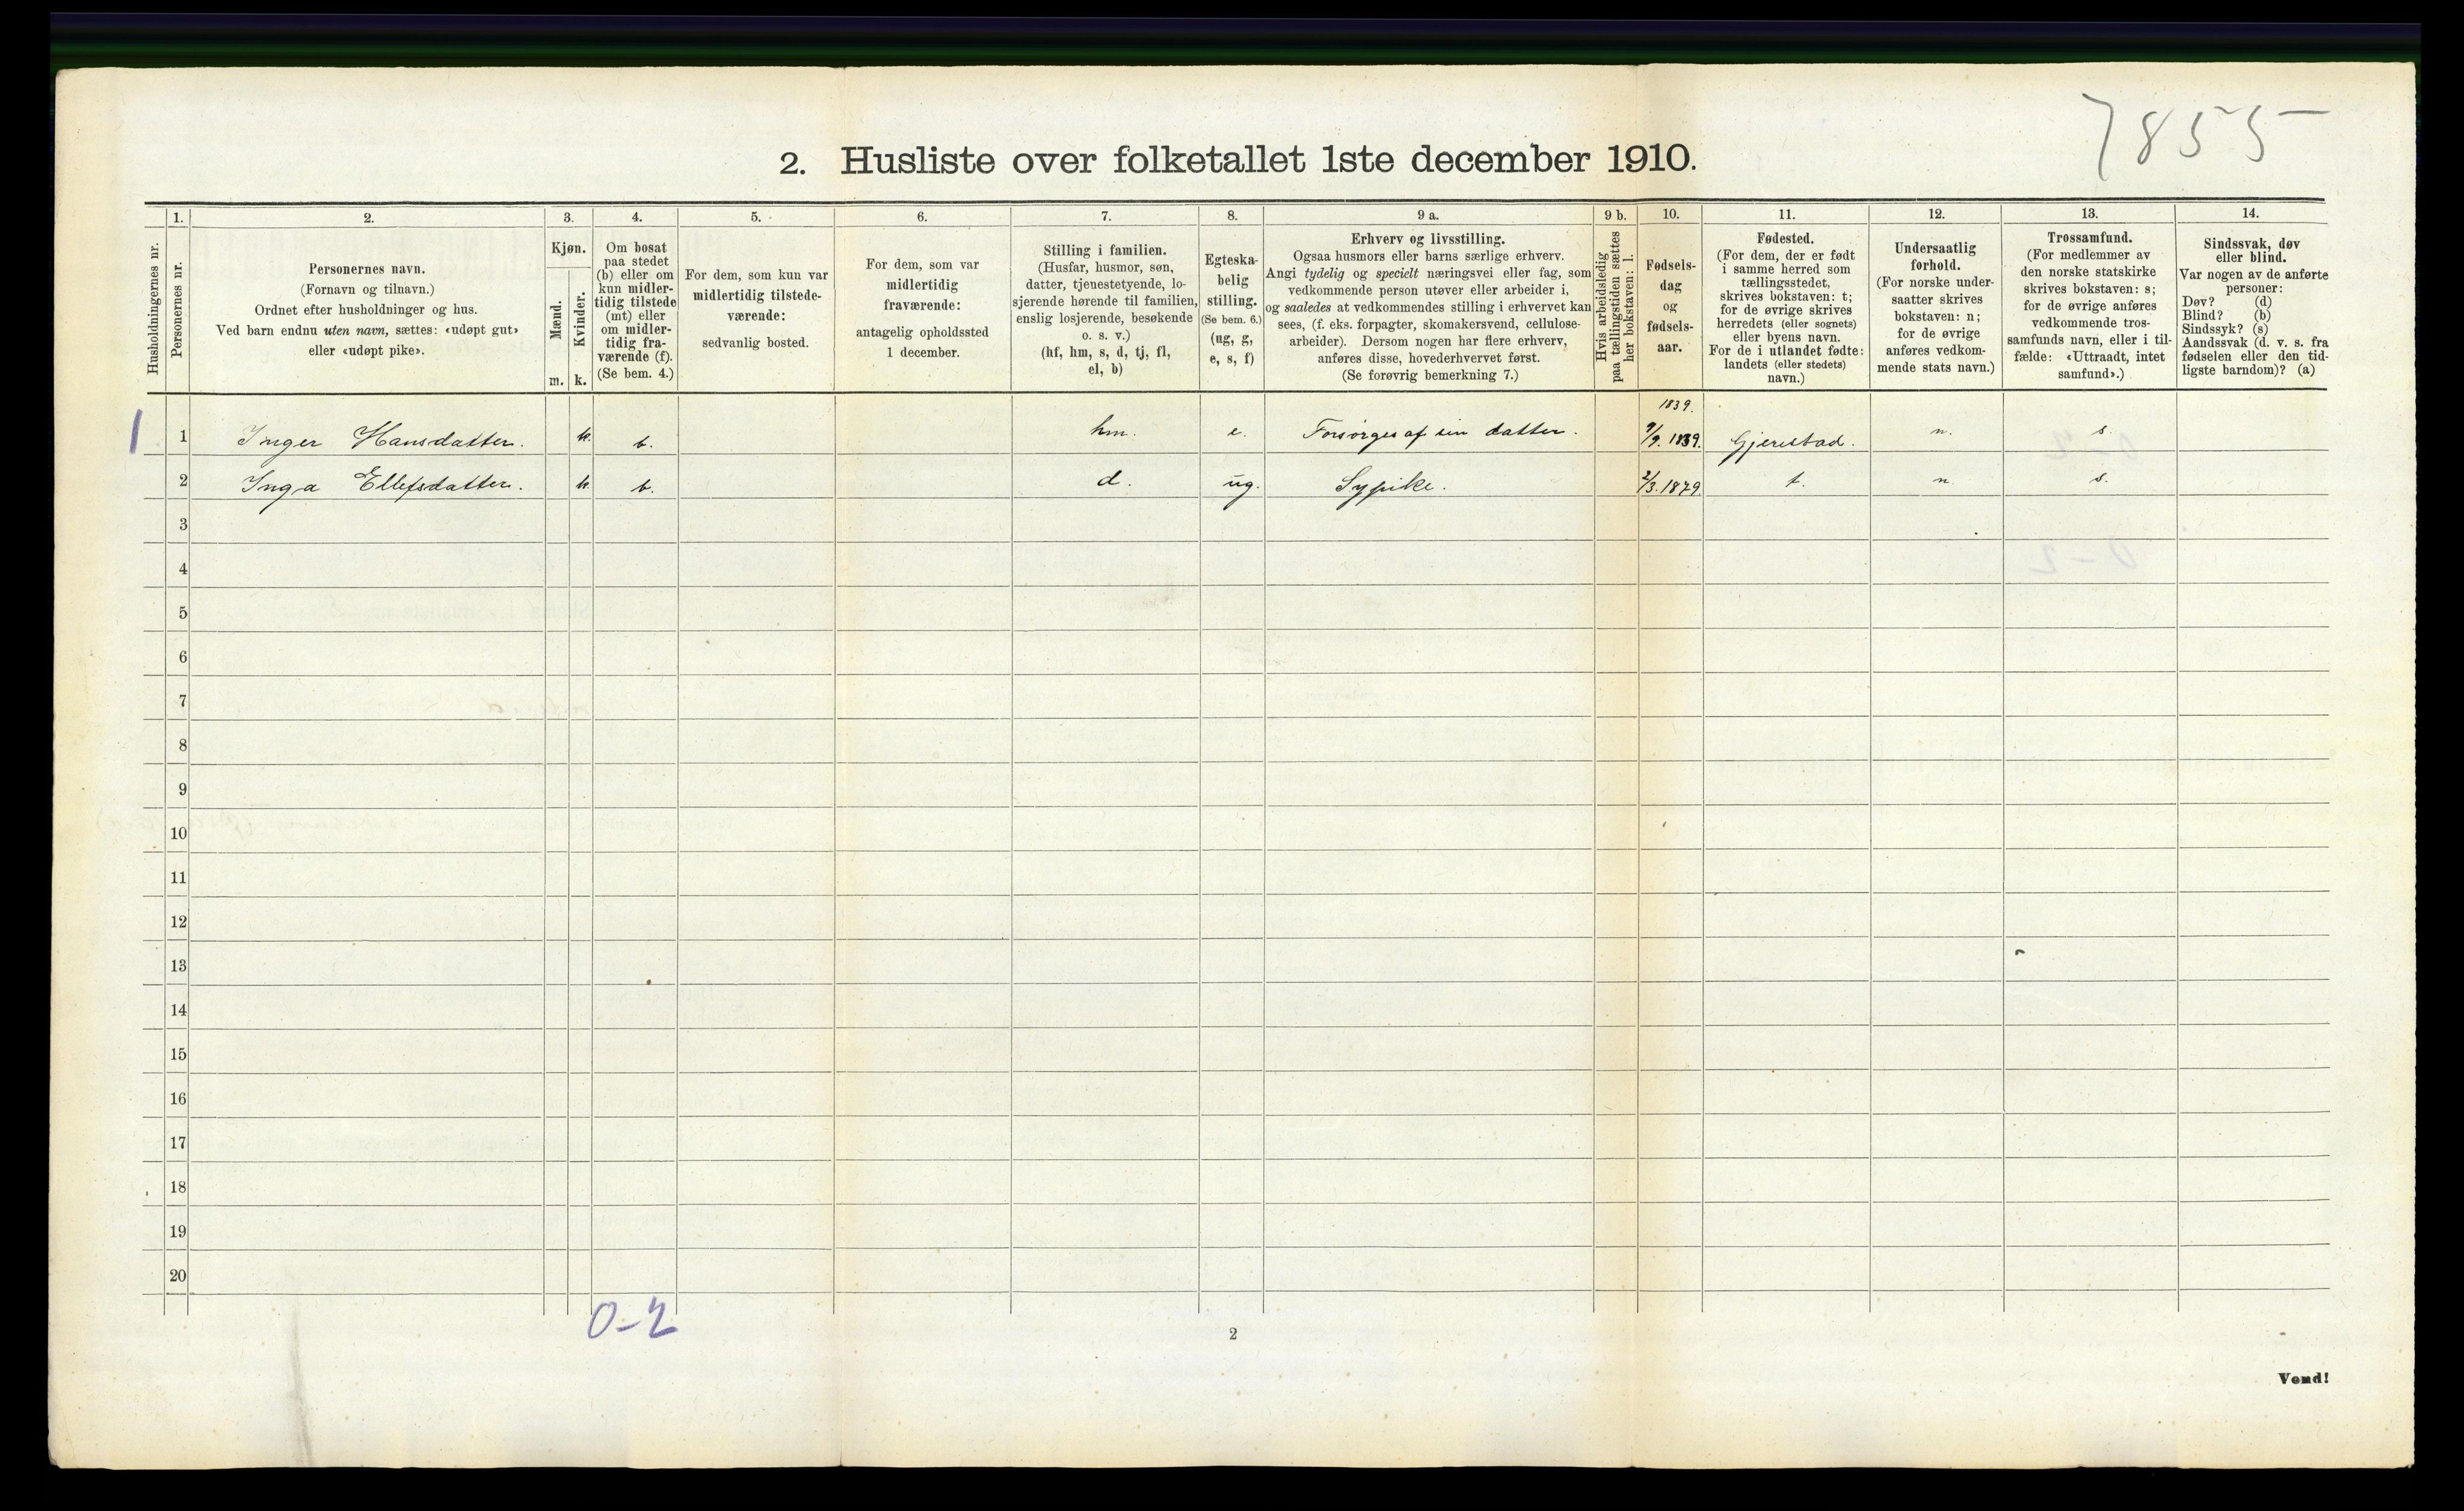 7855
2. Husliste over folketallet 1ste december 1910.
Husholdningernes nr.
1.
Personernes nr.
2.
Personernes navn.
(Fornavn og tilnavn.)
Ordnet efter husholdninger og hus.
Ved barn endnu uten navn, sættes: «udøpt gut»
eller «udøpt pike».
3.
Kjøn.
Mænd.
Kvinder.
m. k.
4.
Om bosat
paa stedet
(b) eller om
kun midler-
tidig tilstede
(mt) eller
om midler-
tidig fra-
værende (f).
(Se bem. 4.)
5.
For dem, som kun var
midlertidig tilstede-
værende:
sedvanlig bosted.
6.
For dem, som var
midlertidig
fraværende:
antagelig opholdssted
1 december.
7.
Stilling i familien.
(Husfar, husmor, søn,
datter, tjenestetyende, lo-
sjerende hørende til familien,
enslig losjerende, besøkende
o. s. v.)
(hf, hm, s, d, tj, fl,
el, b)
8.
Egteska-
belig
stilling.
(Se bem. 6.)
(ug, g,
e, s, f)
9 a.
Erhverv og livsstilling.
Ogsaa husmors eller barns særlige erhverv.
Angi tydelig og specielt næringsvei eller fag, som
vedkommende person utøver eller arbeider i,
og saaledes at vedkommendes stilling i erhvervet kan
sees, (f. eks. forpagter, skomakersvend, cellulose-
arbeider). Dersom nogen har flere erhverv,
anføres disse, hovederhvervet først.
(Se forøvrig bemerkning 7.)
9 b.
Hvis arbeidsledig
paa tællingstiden sættes
her bokstaven: l.
10.
Fødsels-
dag
og
fødsels-
aar.
11.
Fødested.
(For dem, der er født
i samme herred som
tællingsstedet,
skrives bokstaven: t;
for de øvrige skrives
herredets (eller sognets)
eller byens navn.
For de i utlandet fødte:
landets (eller stedets)
navn.)
12.
Undersaatlig
forhold.
(For norske under-
saatter skrives
bokstaven: n;
for de øvrige
anføres vedkom-
mende stats navn.)
13.
Trossamfund.
(For medlemmer av
den norske statskirke
skrives bokstaven: s;
for de øvrige anføres
vedkommende tros-
samfunds navn, eller i til-
fælde: «Uttraadt, intet
samfund».)
14.
Sindssvak, døv
eller blind.
Var nogen av de anførte
personer:
Døv? (d)
Blind? (b)
Sindssyk? (s)
Aandssvak (d. v. s. fra
fødselen eller den tid-
ligste barndom)? (a)
1839.
1 1 Inger Hansdatter. k. b. hm. e. Forsørges af sin datter. 9/9. 1839. Gjerestad. n. s.
2 Inga Ellefsdatter. k. b. d. ug. Sypike. 2/3. 1879. t. n. s.
3
4
5
6
7
8
9
10
11
12
13
14
15
16
17
18
19
20
0-2
2
Vend!